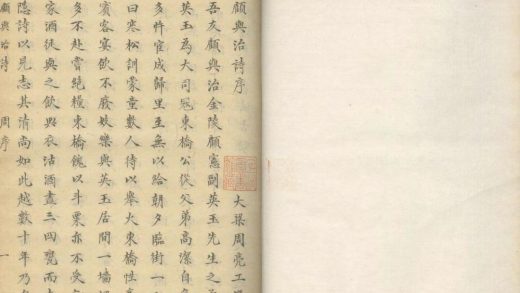 顧與治詩序
大梁周亮工
吾友顧與治金陵顧憲副英玉先生之
英玉為大司寇東橋公從父弟高潔自
多忤官成歸里至無以給朝夕臨街一
曰寒松訓蒙童數人待以舉火東橋性
賓客宴飲不廢妓樂與英玉居間一墻
多不赴嘗絶糧東橋餽以斗粟亦不受
家酒徒與之飲與衣沽酒盡三四甕而
隱詩以見志其清尚如此越數十年乃
顧與治詩 周序 一